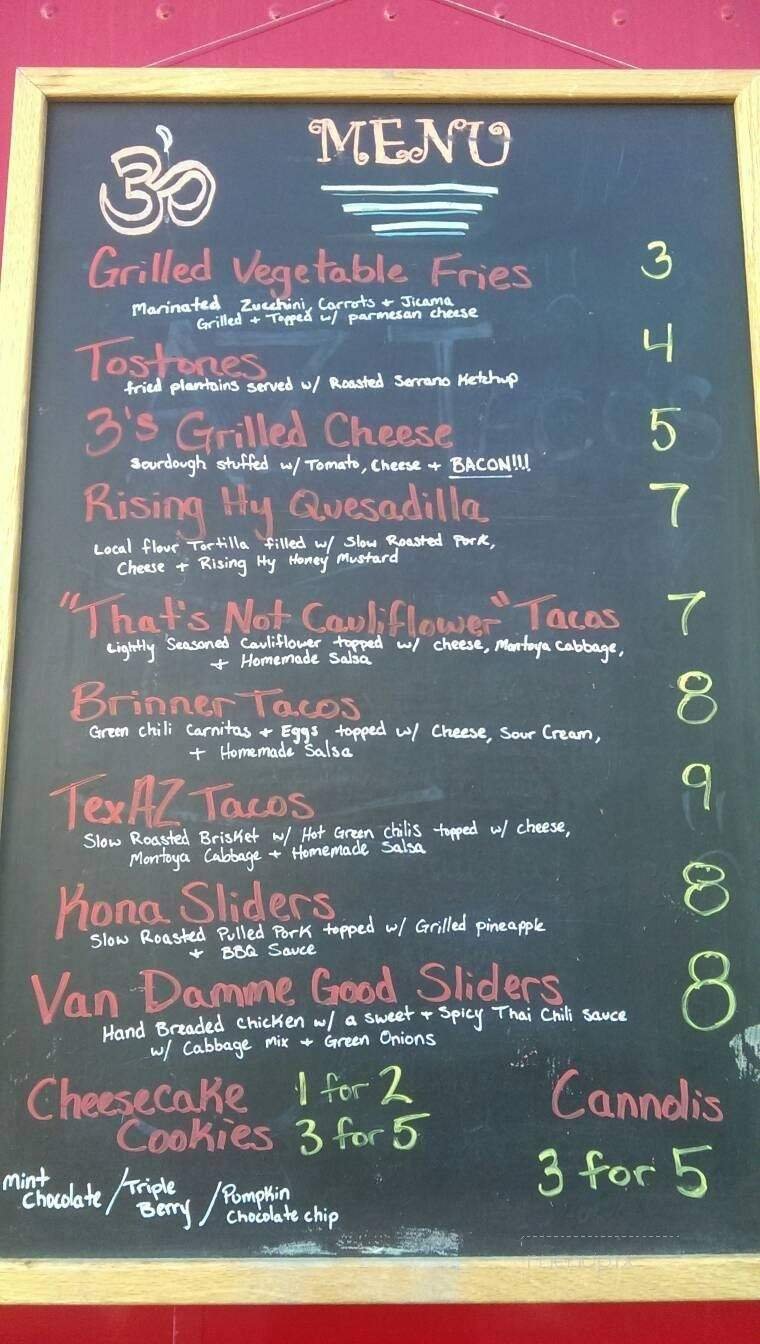 ॐ
MENU
Grilled Vegetable Fries 3
Marinated Zucchini, Carrots + Jicama
Grilled + Topped w/ parmesan cheese
Tostones 4
fried plantains served w/ Roasted Serrano Ketchup
3's Grilled Cheese 5
Sourdough stuffed w/ Tomato, Cheese + BACON!!!
Rising Hy Quesadilla 7
Local flour Tortilla filled w/ Slow Roasted Pork,
Cheese + Rising Hy Honey Mustard
"That's Not Cauliflower" Tacos 7
Lightly Seasoned Cauliflower topped w/ cheese, Montoya Cabbage,
+ Homemade Salsa
Brinner Tacos 8
Green chili Carnitas + Eggs topped w/ Cheese, Sour Cream,
+ Homemade Salsa
TexAZ Tacos 9
Slow Roasted Brisket w/ Hot Green chilis topped w/ cheese,
Montoya Cabbage + Homemade Salsa
Kona Sliders 8
Slow Roasted Pulled Pork topped w/ Grilled pineapple
+ BBQ Sauce
Van Damme Good Sliders 8
Hand Breaded chicken w/ a sweet + Spicy Thai Chili sauce
w/ Cabbage mix + Green Onions
Cheesecake 1 for 2
Cookies 3 for 5
Mint
Chocolate / Triple
Berry / Pumpkin
Chocolate chip
Cannolis
3 for 5
menupix